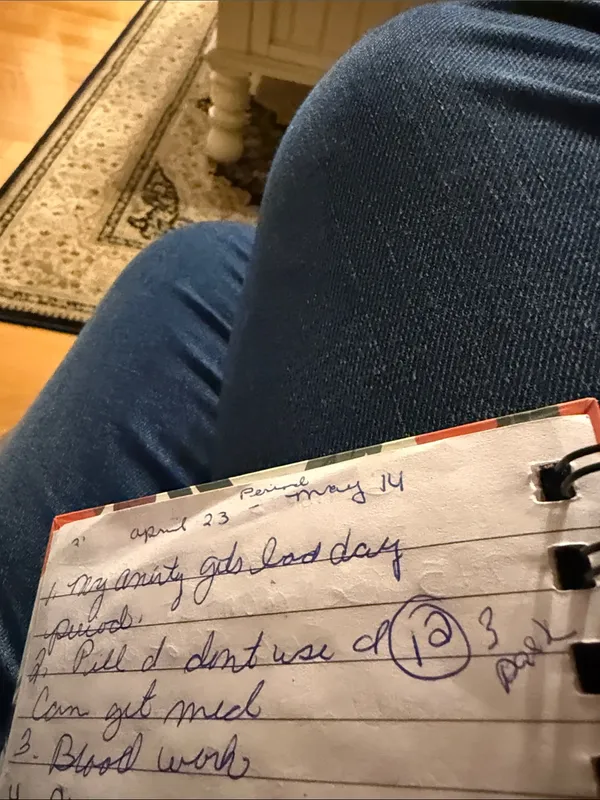 Period
april 23 - May 14
1. My anixty gets bad day
period.
2. Pill d dont use d 12 3
Can get med
3. Blood work
4.